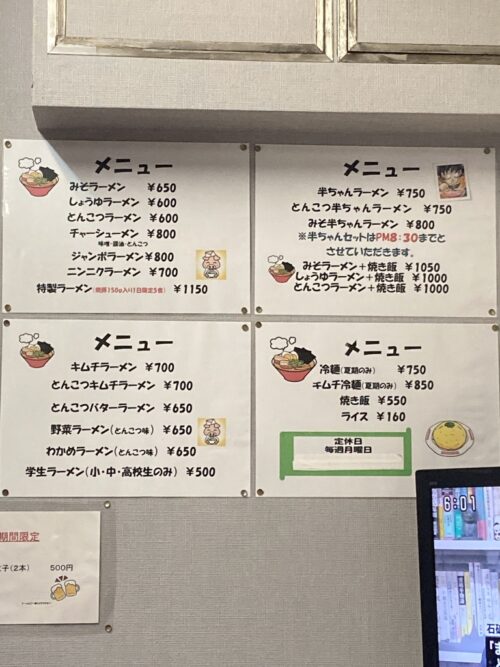 メニュー
みそラーメン ￥650
しょうゆラーメン ￥600
とんこつラーメン ￥600
チャーシューメン ￥800
味噌・醤油・とんこつ
ジャンボラーメン￥800
ニンニクラーメン ￥700
特製ラーメン(焼豚150g入り1日限定5食) ￥1150
メニュー
半ちゃんラーメン ￥750
とんこつ半ちゃんラーメン ￥750
みそ半ちゃんラーメン ￥800
※半ちゃんセットはPM8:30までと
させていただきます。
みそラーメン＋焼き飯 ￥1050
しょうゆラーメン＋焼き飯 ￥1000
とんこつラーメン＋焼き飯 ￥1000
メニュー
キムチラーメン ￥700
とんこつキムチラーメン ￥700
とんこつバターラーメン ￥650
野菜ラーメン(とんこつ味) ￥650
わかめラーメン(とんこつ味) ￥650
学生ラーメン(小・中・高校生のみ) ￥500
メニュー
冷麺(夏期のみ) ￥750
キムチ冷麺(夏期のみ) ￥850
焼き飯 ￥550
ライス ￥160
定休日
毎週月曜日
期間限定
子(2本) 500円
6:01